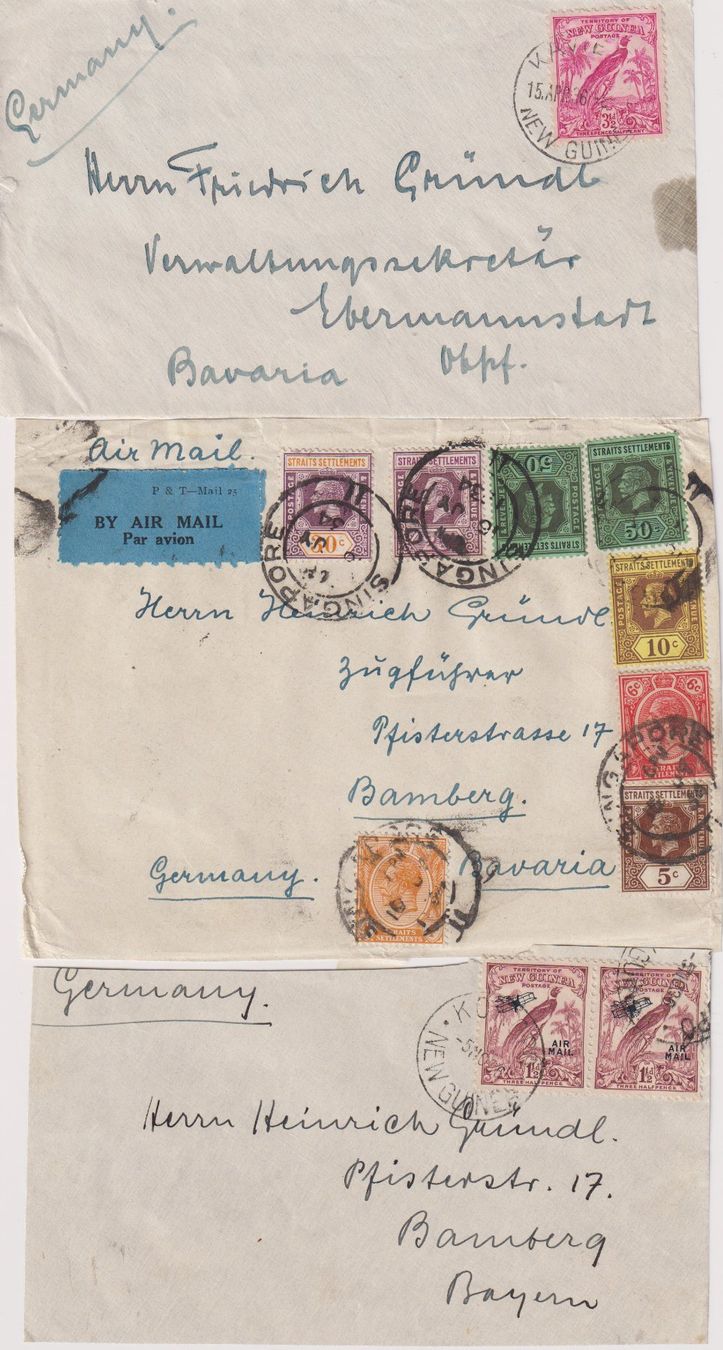 Germany.
TERRITORY OF
NEW GUINEA
POSTAGE
3½d
THREEPENCE HALFPENNY
15.APR.36
NEW GUIN
Herrn Friedrich Gründl
Verwaltungssekretär
Ebermannstadt
Bavaria Obpf.
Air Mail.
P & T—Mail 25
BY AIR MAIL
Par avion
STRAITS SETTLEMENTS
SINGAPORE
STRAITS SETTLEMENTS
SINGAPORE
50
STRAITS SETTLEMENTS
50
STRAITS SETTLEMENTS
POSTAGE
10 c
6c 6c
SINGAPORE
STRAITS SETTLEMENTS
5 c
Herrn Heinrich Gründl
Zugführer
Pfisterstrasse 17
Bamberg.
Germany. Bavaria
STRAITS
SETTLEMENTS
Germany.
TERRITORY OF
NEW GUINEA
POSTAGE
AIR
MAIL
1½d
THREE HALFPENCE
TERRITORY OF
NEW GUINEA
POSTAGE
AIR
MAIL
1½d
THREE HALFPENCE
NEW GUINEA
Herrn Heinrich Gründl.
Pfisterstr. 17.
Bamberg
Bayern